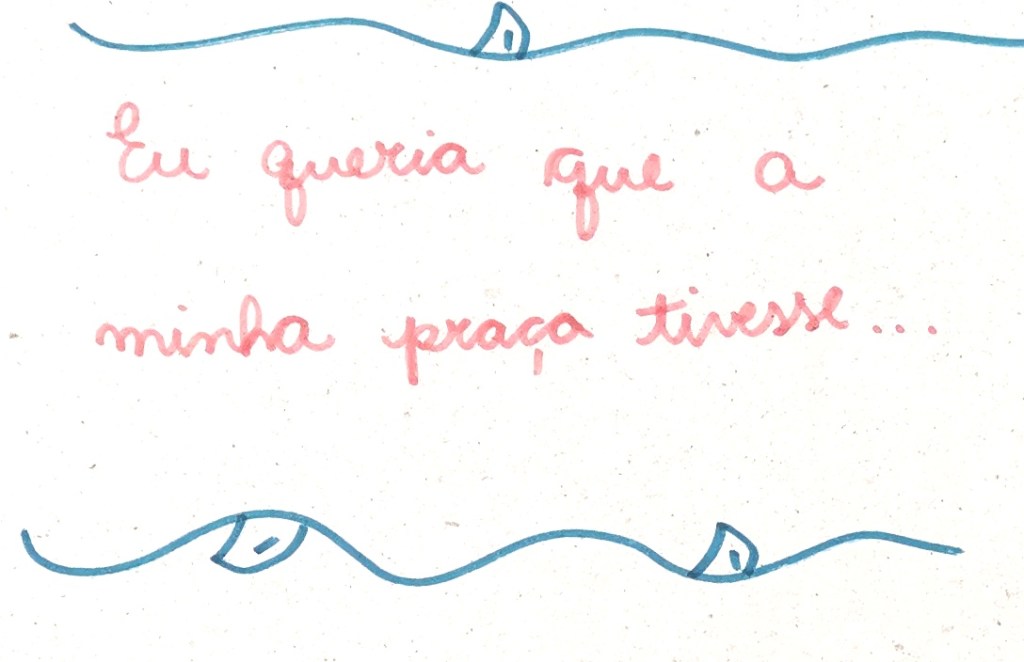 Eu queria que a
minha praça tivesse....